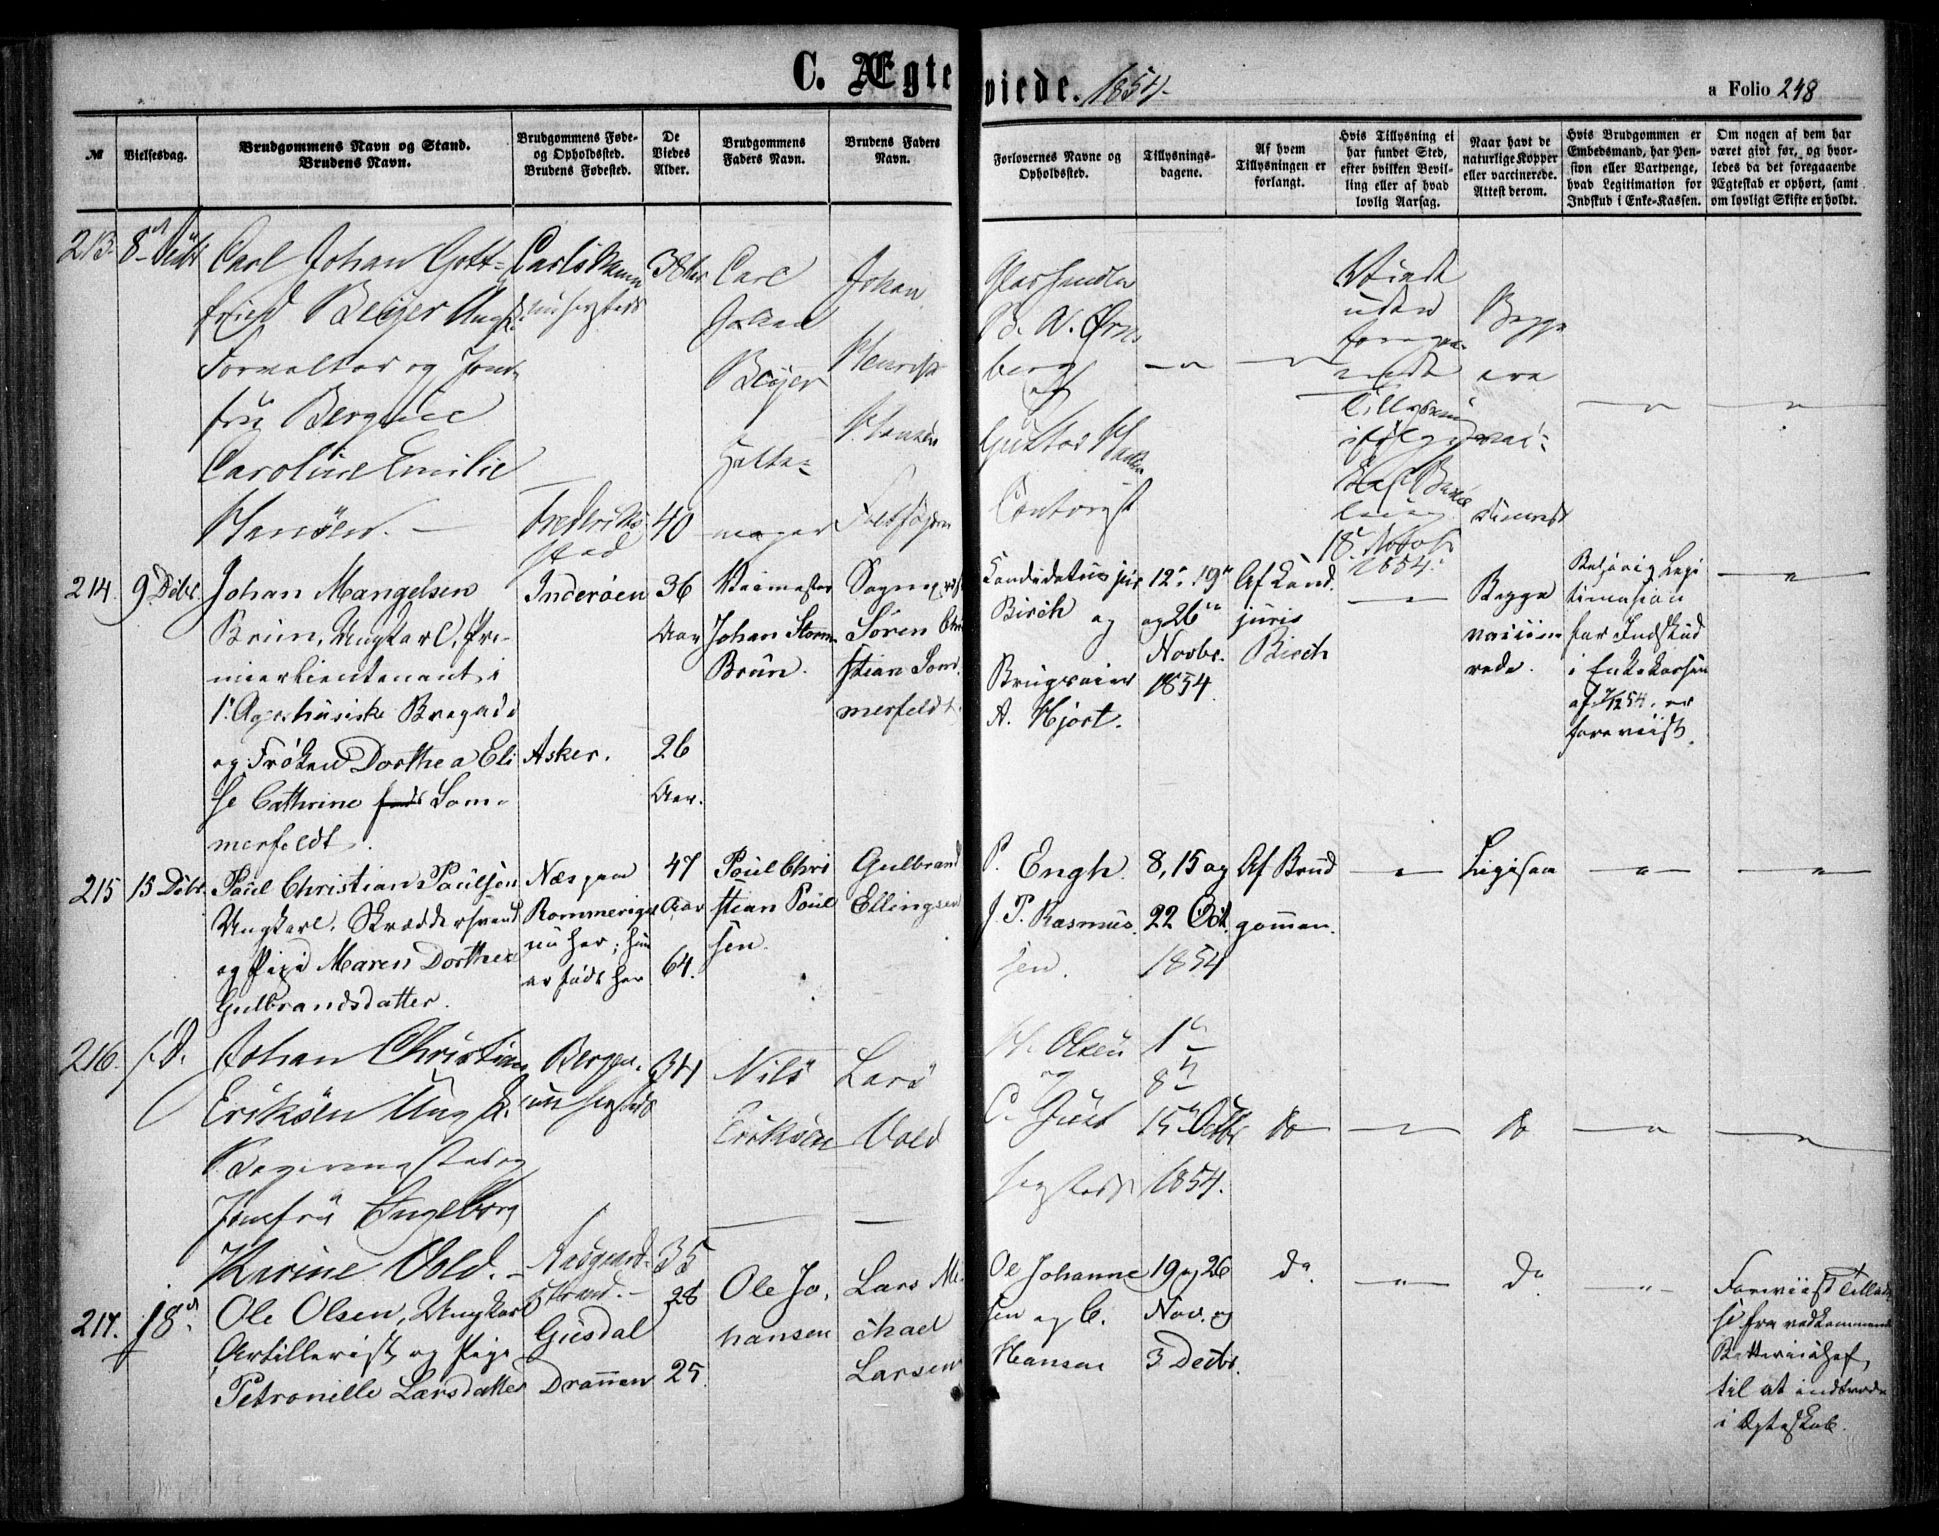 C. Ægte viede. 1854.
a Folio 248
№
Vielsesdag.
Brudgommens Navn og Stand.
Brudens Navn.
Brudgommens Føde-
og Opholdssted.
Brudens Fødested.
De
Viedes
Alder.
Brudgommens
Faders Navn.
Brudens Faders
Navn.
Forlovernes Navne og
Opholdssted.
Tillysnings-
dagene.
Af hvem
Tillysningen er
forlangt.
Hvis Tillysning ei
har fundet Sted,
efter hvilken Bevil-
ling eller af hvad
lovlig Aarsag.
Naar havt de
naturlige Kopper
eller vaccinerede.
Attest derom.
Hvis Brudgommen er
Embedsmand, har Pen-
sion eller Vartpenge,
hvad Legitimation for
Indskud i Enke-Kassen.
Om nogen af dem har
været givt før, og hvor-
ledes da det foregaaende
Ægteskab er ophørt, samt
om lovligt Skifte er holdt.
213.
Carl Johan Gott-
fried Beijer Ungk.
Forvalter og Jom-
fru
Caroline Emilie
Hansen. —
Carlshamn
Frederiks
stad
40
Carl
Johan
Beijer
Johan
Henrik
Hansen
Glashandler
berg
og
Gustav
Contorist
Viede
uden
foregaa-
ende
Tillysning
ifølge
18.
1854.
Begge
ere
vac-
cinerede
214. 9. Dbr.
Johan Mangelsen
Brun, Ungkarl, Pre-
mierlieutenant i
1. Agershusiske Brigade
og Frøken Dorthea Eli
se Cathrine Som-
merfeldt.
Inderøen
Asker.
36
Aar
26
Aar.
Veimester
Johan Storm
Brun.
Sogneprest
Søren Chri
stian Som
merfeldt.
Candidatus juris
Birch og
A. Hjort.
12. 19
og 26
Novbr.
1854.
Af Cand.
juris
Birch
Begge
vaccine
rede.
Behørig Legi
timation
for Indskud
i Enkekassen
af 7/12 54. er
foreviist.
215 15 Dbr.
Poul Christian Poulsen
Ungkarl, Skræddersvend
og Pige Maren Dorthea
Gulbrandsdatter.
Næs paa
Rommerige
nu her; hun
er født her
47
Aar
64.
Poul Chri
stian Poul
sen.
Gulbrand
Ellingsen
P. Engh.
J. P. Rasmus
sen.
8, 15 og
22 Oct.
1854
Af Brud
gommen.
Ligesaa
216. s. D.
Johan Christian
Eriksen Ungk.
Jomfru Ingeborg
Karine Vold. —
Bergen.
34
35
Nils
Eriksen
Lars
Vold
H. Olsen
og
C. Juul
1
8
15 Octbr
1854.
do
do
217. 18
Ole Olsen, Ungkarl
Artillerist og Pige
Petronille Larsdatter
Gusdal
Drammen
28
25.
Ole Jo-
hansen
Lars Mi-
chael
Larsen
Ole Johanne
sen og C.
Hansen
19 og 26
Nov. og
3 Decbr.
Do.
Do
Foreviist Tilladel
se fra vedkommende
til at indtræde
i Ægteskab.